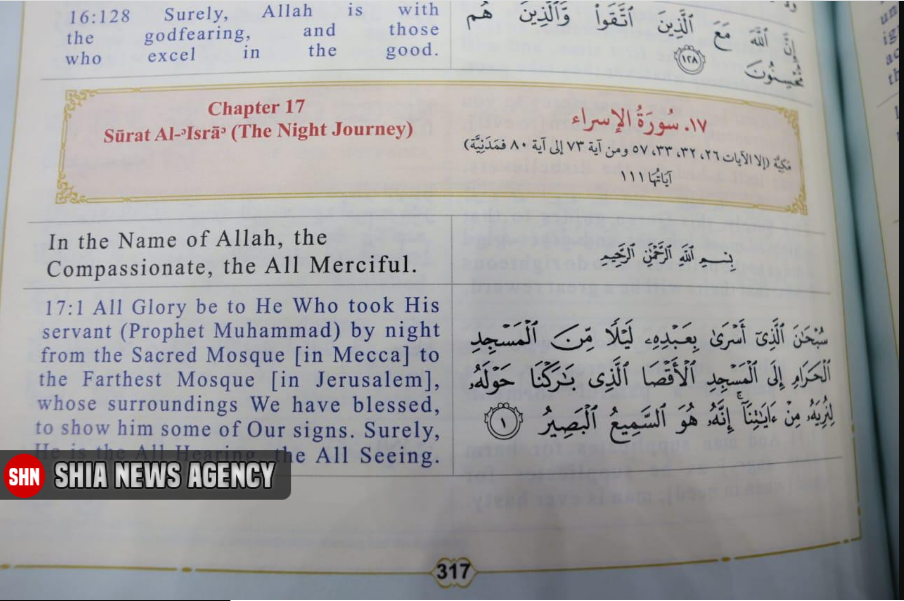 16:128 Surely, Allah is with
the godfearing, and those
who excel in the good.
إِنَّ اللَّهَ مَعَ الَّذِينَ اتَّقَوا۟ وَّالَّذِينَ هُم
مُّحْسِنُونَ ١٢٨
Chapter 17
Sūrat Al-ʾIsrāʾ (The Night Journey)
١٧. سُورَةُ الإسراء
مَكِيَّة (إلا الآيات ٢٦، ٣٢، ٣٣، ٥٧ ومن آية ٧٣ إلى آية ٨٠ فمَدَنِيَّة)
آيَاتُهَا ١١١
In the Name of Allah, the
Compassionate, the All Merciful.
بِسْمِ اللَّهِ الرَّحْمَٰنِ الرَّحِيمِ
17:1 All Glory be to He Who took His
servant (Prophet Muhammad) by night
from the Sacred Mosque [in Mecca] to
the Farthest Mosque [in Jerusalem],
whose surroundings We have blessed,
to show him some of Our signs. Surely,
He is the All Hearing, the All Seeing.
سُبْحَٰنَ الَّذِىٓ أَسْرَىٰ بِعَبْدِهِۦ لَيْلًا مِّنَ الْمَسْجِدِ
الْحَرَامِ إِلَى الْمَسْجِدِ الْأَقْصَا الَّذِى بَٰرَكْنَا حَوْلَهُۥ
لِنُرِيَهُۥ مِنْ ءَايَٰتِنَآ ۚ إِنَّهُۥ هُوَ السَّمِيعُ الْبَصِيرُ ١
SHN SHIA NEWS AGENCY
317